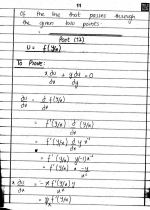 11
Of the line that passes through
the given two points.
Part (12)
U = f(y/x)
To Prove:
x du/dx + y du/dy = 0
du/dx = d/dx f(y/x)
= f'(y/x) d/dx (y/x)
= f'(y/x) d/dx y x⁻¹
= f'(y/x) y(-1)x⁻²
= f'(y/x) · -y/x²
x du/dx = -x f'(y/x) y / x²
f'(y/x)